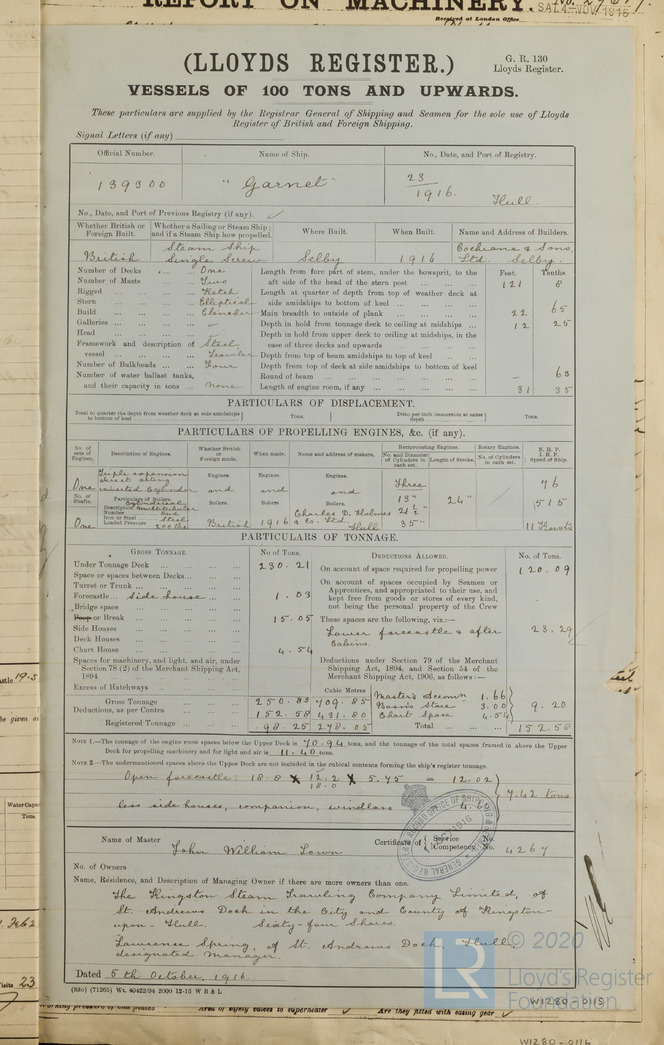 REPORT ON MACHINERY.
Received at London Office
SAT. 4-NOV. 1916
(LLOYDS REGISTER.)
G. R. 130
Lloyds Register.
VESSELS OF 100 TONS AND UPWARDS.
These particulars are supplied by the Registrar General of Shipping and Seamen for the sole use of Lloyds
Register of British and Foreign Shipping.
Signal Letters (if any)
Official Number. Name of Ship. No., Date, and Port of Registry.
139300 "Garnet" 23/1916. Hull.
No., Date, and Port of Previous Registry (if any).
Whether British or Foreign Built. Whether a Sailing or Steam Ship; and if a Steam Ship how propelled. Where Built. When Built. Name and Address of Builders.
British Steam Ship Single Screw Selby 1916 Cochrane & Sons Ltd. Selby.
Feet. Tenths.
Number of Decks One Length from fore part of stem, under the bowsprit, to the
Number of Masts Two aft side of the head of the stern post 121 8
Rigged Ketch Length at quarter of depth from top of weather deck at
Stern Elliptical side amidships to bottom of keel
Build Clencher Main breadth to outside of plank 22 65
Galleries Depth in hold from tonnage deck to ceiling at midships 12 25
Head Depth in hold from upper deck to ceiling at midships, in the
Framework and description of Steel case of three decks and upwards
vessel Trawler Depth from top of beam amidships to top of keel
Number of Bulkheads Four Depth from top of deck at side amidships to bottom of keel
Number of water ballast tanks, Round of beam - 63
and their capacity in tons None Length of engine room, if any 31 35
PARTICULARS OF DISPLACEMENT.
Total to quarter the depth from weather deck at side amidships to bottom of keel Tons. Ditto per inch immersion at same depth Tons.
PARTICULARS OF PROPELLING ENGINES, &c. (if any).
No. of sets of Engines. Description of Engines. Whether British or Foreign made. When made. Name and address of makers. Reciprocating Engines. Rotary Engines. N.H.P. I.H.P. Speed of Ship.
No. and Diameter of Cylinders in each set. Length of Stroke. No. of Cylinders in each set.
One Triple expansion direct acting inverted Cylinder Engines. and Engines. and Engines. and Three 76
No. of Shafts. Particulars of Boilers. Boilers. Boilers Boilers 13" 24" 515
Description Cylindrical Multitubular
Number One
Iron or Steel Steel
One Loaded Pressure 200 lbs British 1916 Charles D. Holmes & Co. Ltd. Hull 21½" 35" 11 Knots
PARTICULARS OF TONNAGE.
GROSS TONNAGE. No of Tons. DEDUCTIONS ALLOWED. No. of Tons.
Under Tonnage Deck 230.21 On account of space required for propelling power 120.09
Space or spaces between Decks On account of spaces occupied by Seamen or
Turret or Trunk Apprentices, and appropriated to their use, and
Forecastle side house 1.03 kept free from goods or stores of every kind,
Bridge space not being the personal property of the Crew
Poop or Break 15.05 These spaces are the following, viz.:—
Side Houses Lower forecastle & after 23.29
Deck Houses Cabins.
Chart House 4.54
Spaces for machinery, and light, and air, under Deductions under Section 79 of the Merchant
Section 78 (2) of the Merchant Shipping Act, Shipping Act, 1894, and Section 54 of the
1894 Merchant Shipping Act, 1906, as follows:—
Excess of Hatchways
Cubic Metres Master's Accomn 1.66
Gross Tonnage 250.83 709.85 Bosn's Store 3.00 9.20
Deductions, as per Contra 152.58 431.80 Chart Space 4.54
Registered Tonnage 98.25 278.05 Total 152.58
NOTE 1.—The tonnage of the engine room spaces below the Upper Deck is 70.94 tons, and the tonnage of the total spaces framed in above the Upper
Deck for propelling machinery and for light and air is 11.40 tons.
NOTE 2.—The undermentioned spaces above the Upper Deck are not included in the cubical contents forming the ship's register tonnage.
Open forecastle: 18.8 x 12.2 x 5.75 = 12.02
18.0
7.42 tons
less side houses, companion, windlass
Name of Master John William Lown Certificate of { Service No. Competency No. 4267
No. of Owners
Name, Residence, and Description of Managing Owner if there are more owners than one.
The Kingston Steam Trawling Company Limited, of
St. Andrews Dock in the City and County of Kingston-
upon-Hull. Sixty-four Shares.
Lawrence Spring, of St. Andrews Dock, Hull
designated Manager.
Dated 5th October, 1916.
(83o) (71265) Wt. 40422/94 2000 12-15 W B & L
© 2020
LR
Lloyd's Register
Foundation
W1280-0115
Area of safety valves to superheater Are they fitted with easing gear
W1280-0116